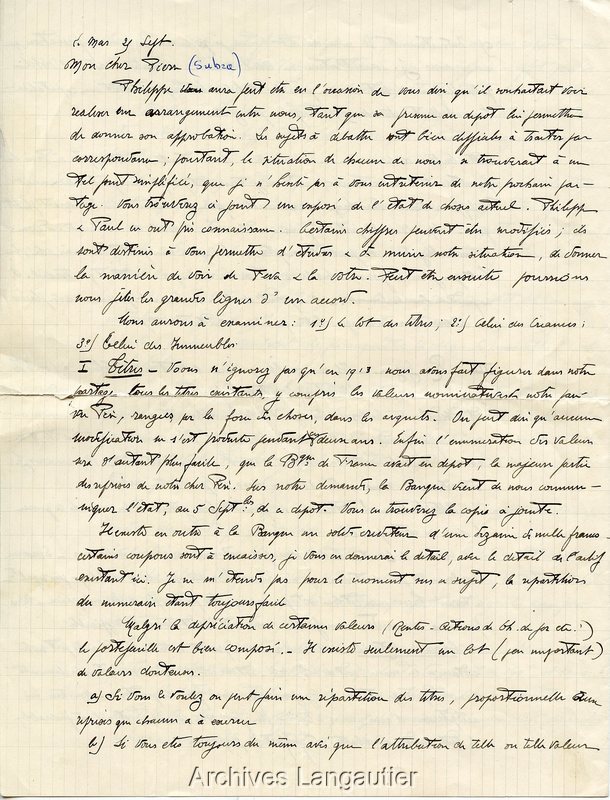 Le Mas 25 Sept.
Mon cher Pierre (Subra)
Philippe aura peut être eu l'occasion de vous dire qu'il souhaitait voir
réaliser un arrangement entre nous, tant que sa présence au dépôt lui permettra
de donner son approbation. Les sujets à débattre sont bien difficiles à traiter par
correspondance ; pourtant, la situation de chacun de nous se trouverait à un
tel point simplifiée, que je n'hésite pas à vous entretenir de notre prochain par-
tage. Vous trouverez ci joint un exposé de l'état de choses actuel. Philippe
& Paul en ont pris connaissance. Certains chiffres peuvent être modifiés ; ils
sont destinés à vous permettre d'étudier & de mûrir notre situation, de donner
la manière de voir de & la vôtre. Peut être ensuite pourrons
nous jeter les grandes lignes d'un accord.
Nous aurons à examiner : 1°) le lot des titres ; 2°) Celui des Créances ;
3°) Celui des Immeubles.
I Titres - Vous n'ignorez pas qu'en 1913 nous avons fait figurer dans notre
partage tous les titres existants, y compris les valeurs nominatives de notre pau-
vre Père, rangées par la force des choses, dans les acquêts. On peut dire qu'aucune
modification ne s'est produite pendant ces deux ans. Enfin l'énumération des valeurs
sera d'autant plus facile, que la Bque de France avait en dépôt, la majeure partie
des reprises de notre cher Père. Sur notre demande, la Banque vient de nous commu-
niquer l'état, au 5 Septbre, de ce dépôt. Vous en trouverez la copie ci jointe.
Il existe en outre à la Banque un solde créditeur d'une dizaine de mille francs -
certains coupons sont à encaisser, je vous en donnerai le détail, avec le détail de l'actif
existant ici. Je ne m'étends pas pour le moment sur ce sujet, la répartition
du numéraire étant toujours facile
Malgré la dépréciation de certaines valeurs (Rentes - Actions de Ch. de fer etc.)
le portefeuille est bien composé. - Il existe seulement un lot (peu important)
de valeurs douteuses.
a) Si vous le voulez on peut faire une répartition des titres, proportionnelle aux
reprises que chacun a à exercer
b) Si vous êtes toujours du même avis que l'attribution de telle ou telle valeur
Archives Langautier